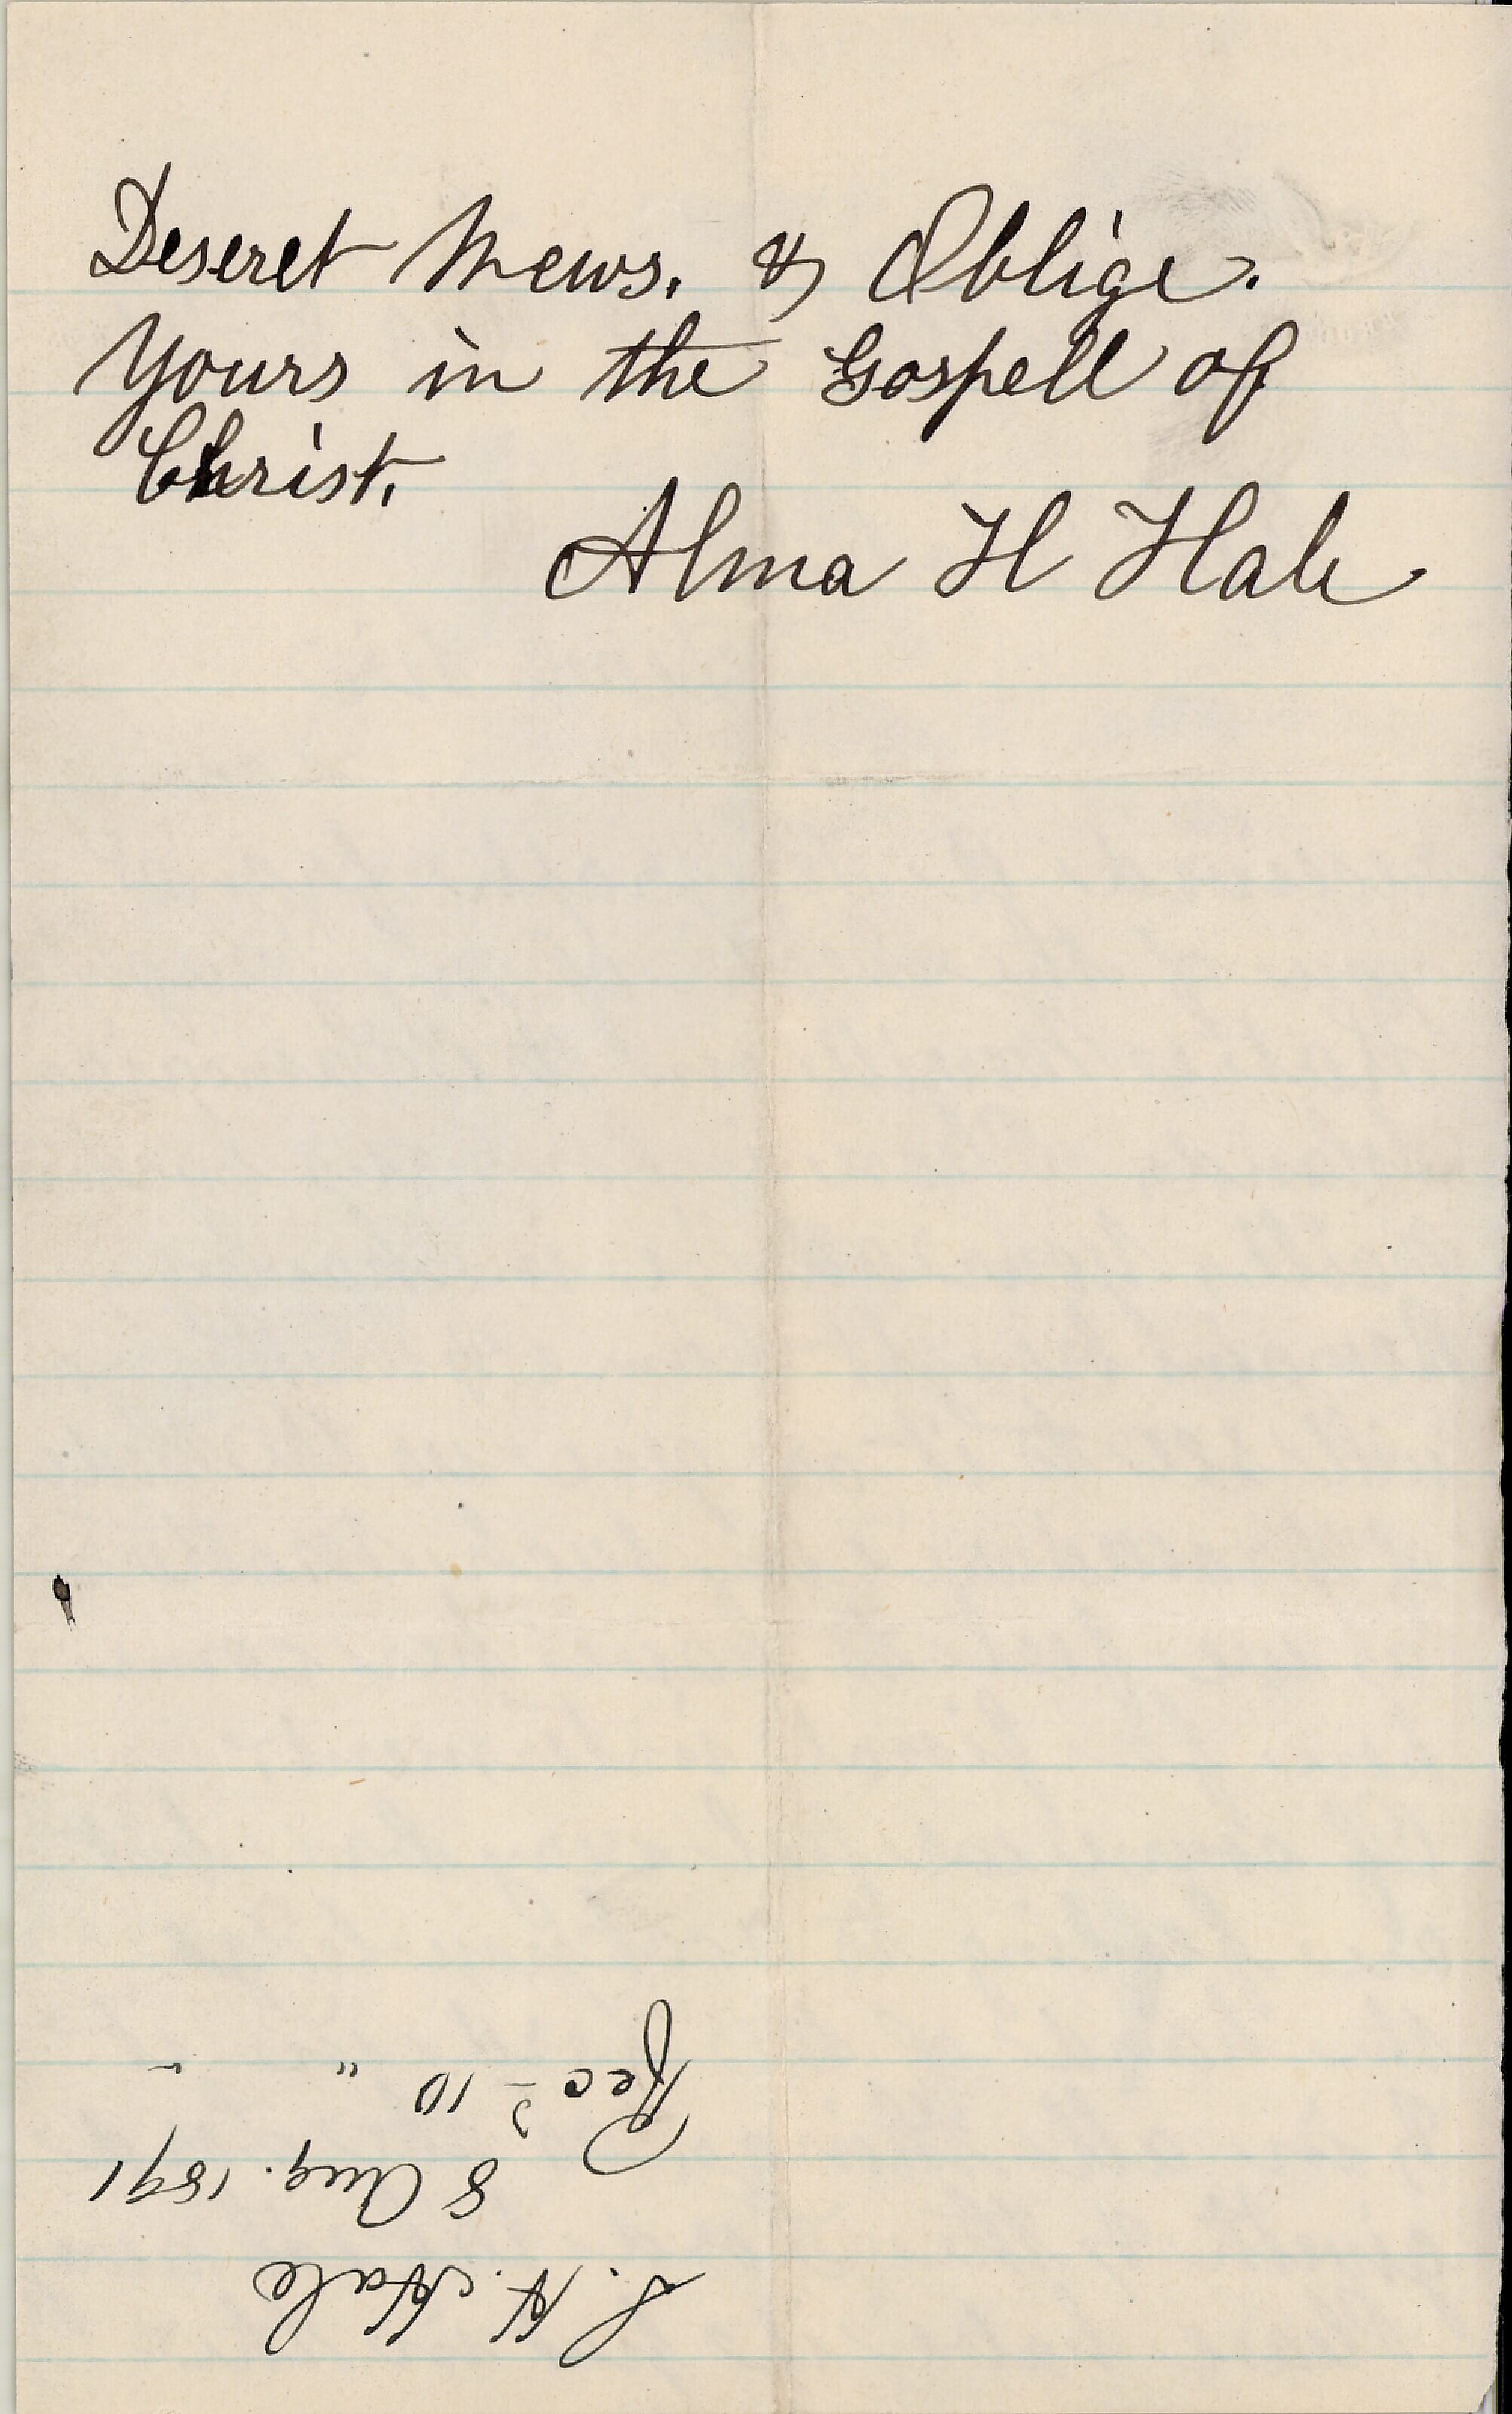 Deseret News. & Oblige.
Yours in the Gospell of
Christ.
Alma H Hale
S. H. Hale
8 Aug. 1891
Recd 10 " "